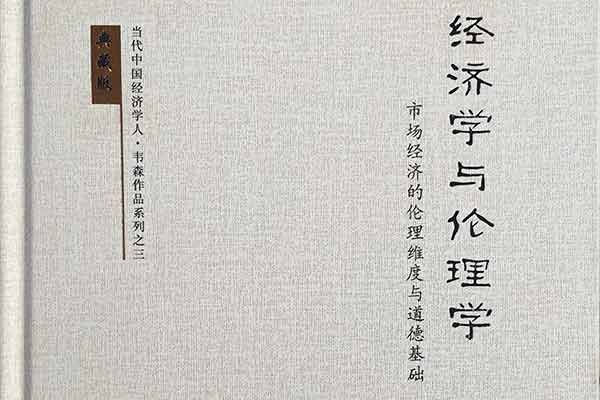 经济学与伦理学
市场经济的伦理维度与道德基础
当代中国经济学人·韦森作品系列之三
典藏版